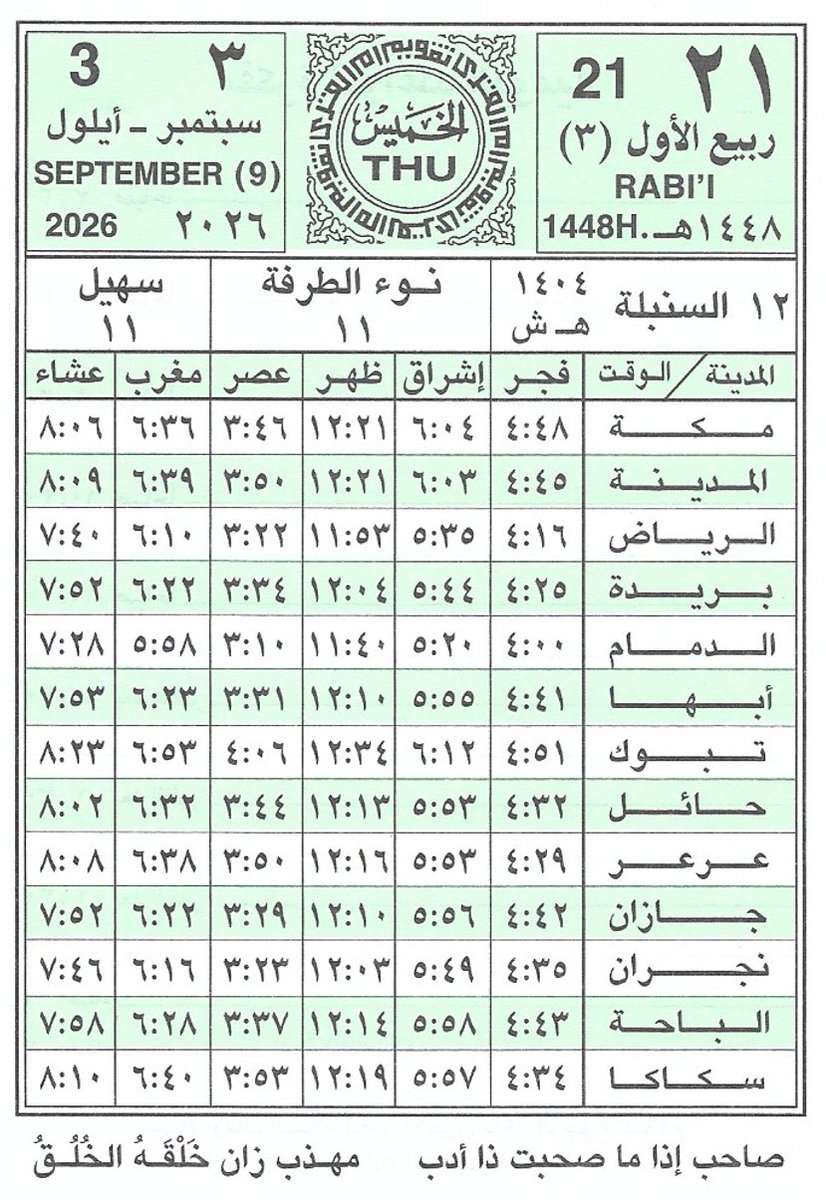 ٢١ 21
ربيع الأول (٣)
RABI'I
1448H. ١٤٤٨هـ
الخميس
THU
٣ 3
سبتمبر - أيلول
SEPTEMBER (9)
٢٠٢٦ 2026
١٢ السنبلة ١٤٠٤ هـ ش
نوء الطرفة
١١
سهيل
١١
المدينة / الوقت فجر إشراق ظهر عصر مغرب عشاء
مكة ٤:٤٨ ٦:٠٤ ١٢:٢١ ٣:٤٦ ٦:٣٦ ٨:٠٦
المدينة ٤:٤٥ ٦:٠٣ ١٢:٢١ ٣:٥٠ ٦:٣٩ ٨:٠٩
الرياض ٤:١٦ ٥:٣٥ ١١:٥٣ ٣:٢٢ ٦:١٠ ٧:٤٠
بريدة ٤:٢٥ ٥:٤٤ ١٢:٠٤ ٣:٣٤ ٦:٢٢ ٧:٥٢
الدمام ٤:٠٠ ٥:٢٠ ١١:٤٠ ٣:١٠ ٥:٥٨ ٧:٢٨
أبها ٤:٤١ ٥:٥٥ ١٢:١٠ ٣:٣١ ٦:٢٣ ٧:٥٣
تبوك ٤:٥١ ٦:١٢ ١٢:٣٤ ٤:٠٦ ٦:٥٣ ٨:٢٣
حائل ٤:٣٢ ٥:٥٣ ١٢:١٣ ٣:٤٤ ٦:٣٢ ٨:٠٢
عرعر ٤:٢٩ ٥:٥٣ ١٢:١٦ ٣:٥٠ ٦:٣٨ ٨:٠٨
جازان ٤:٤٢ ٥:٥٦ ١٢:١٠ ٣:٢٩ ٦:٢٢ ٧:٥٢
نجران ٤:٣٥ ٥:٤٩ ١٢:٠٣ ٣:٢٣ ٦:١٦ ٧:٤٦
الباحة ٤:٤٣ ٥:٥٨ ١٢:١٤ ٣:٣٧ ٦:٢٨ ٧:٥٨
سكاكا ٤:٣٤ ٥:٥٧ ١٢:١٩ ٣:٥٣ ٦:٤٠ ٨:١٠
صاحب إذا ما صحبت ذا أدب مهذب زان خَلْقَهُ الخُلُقُ